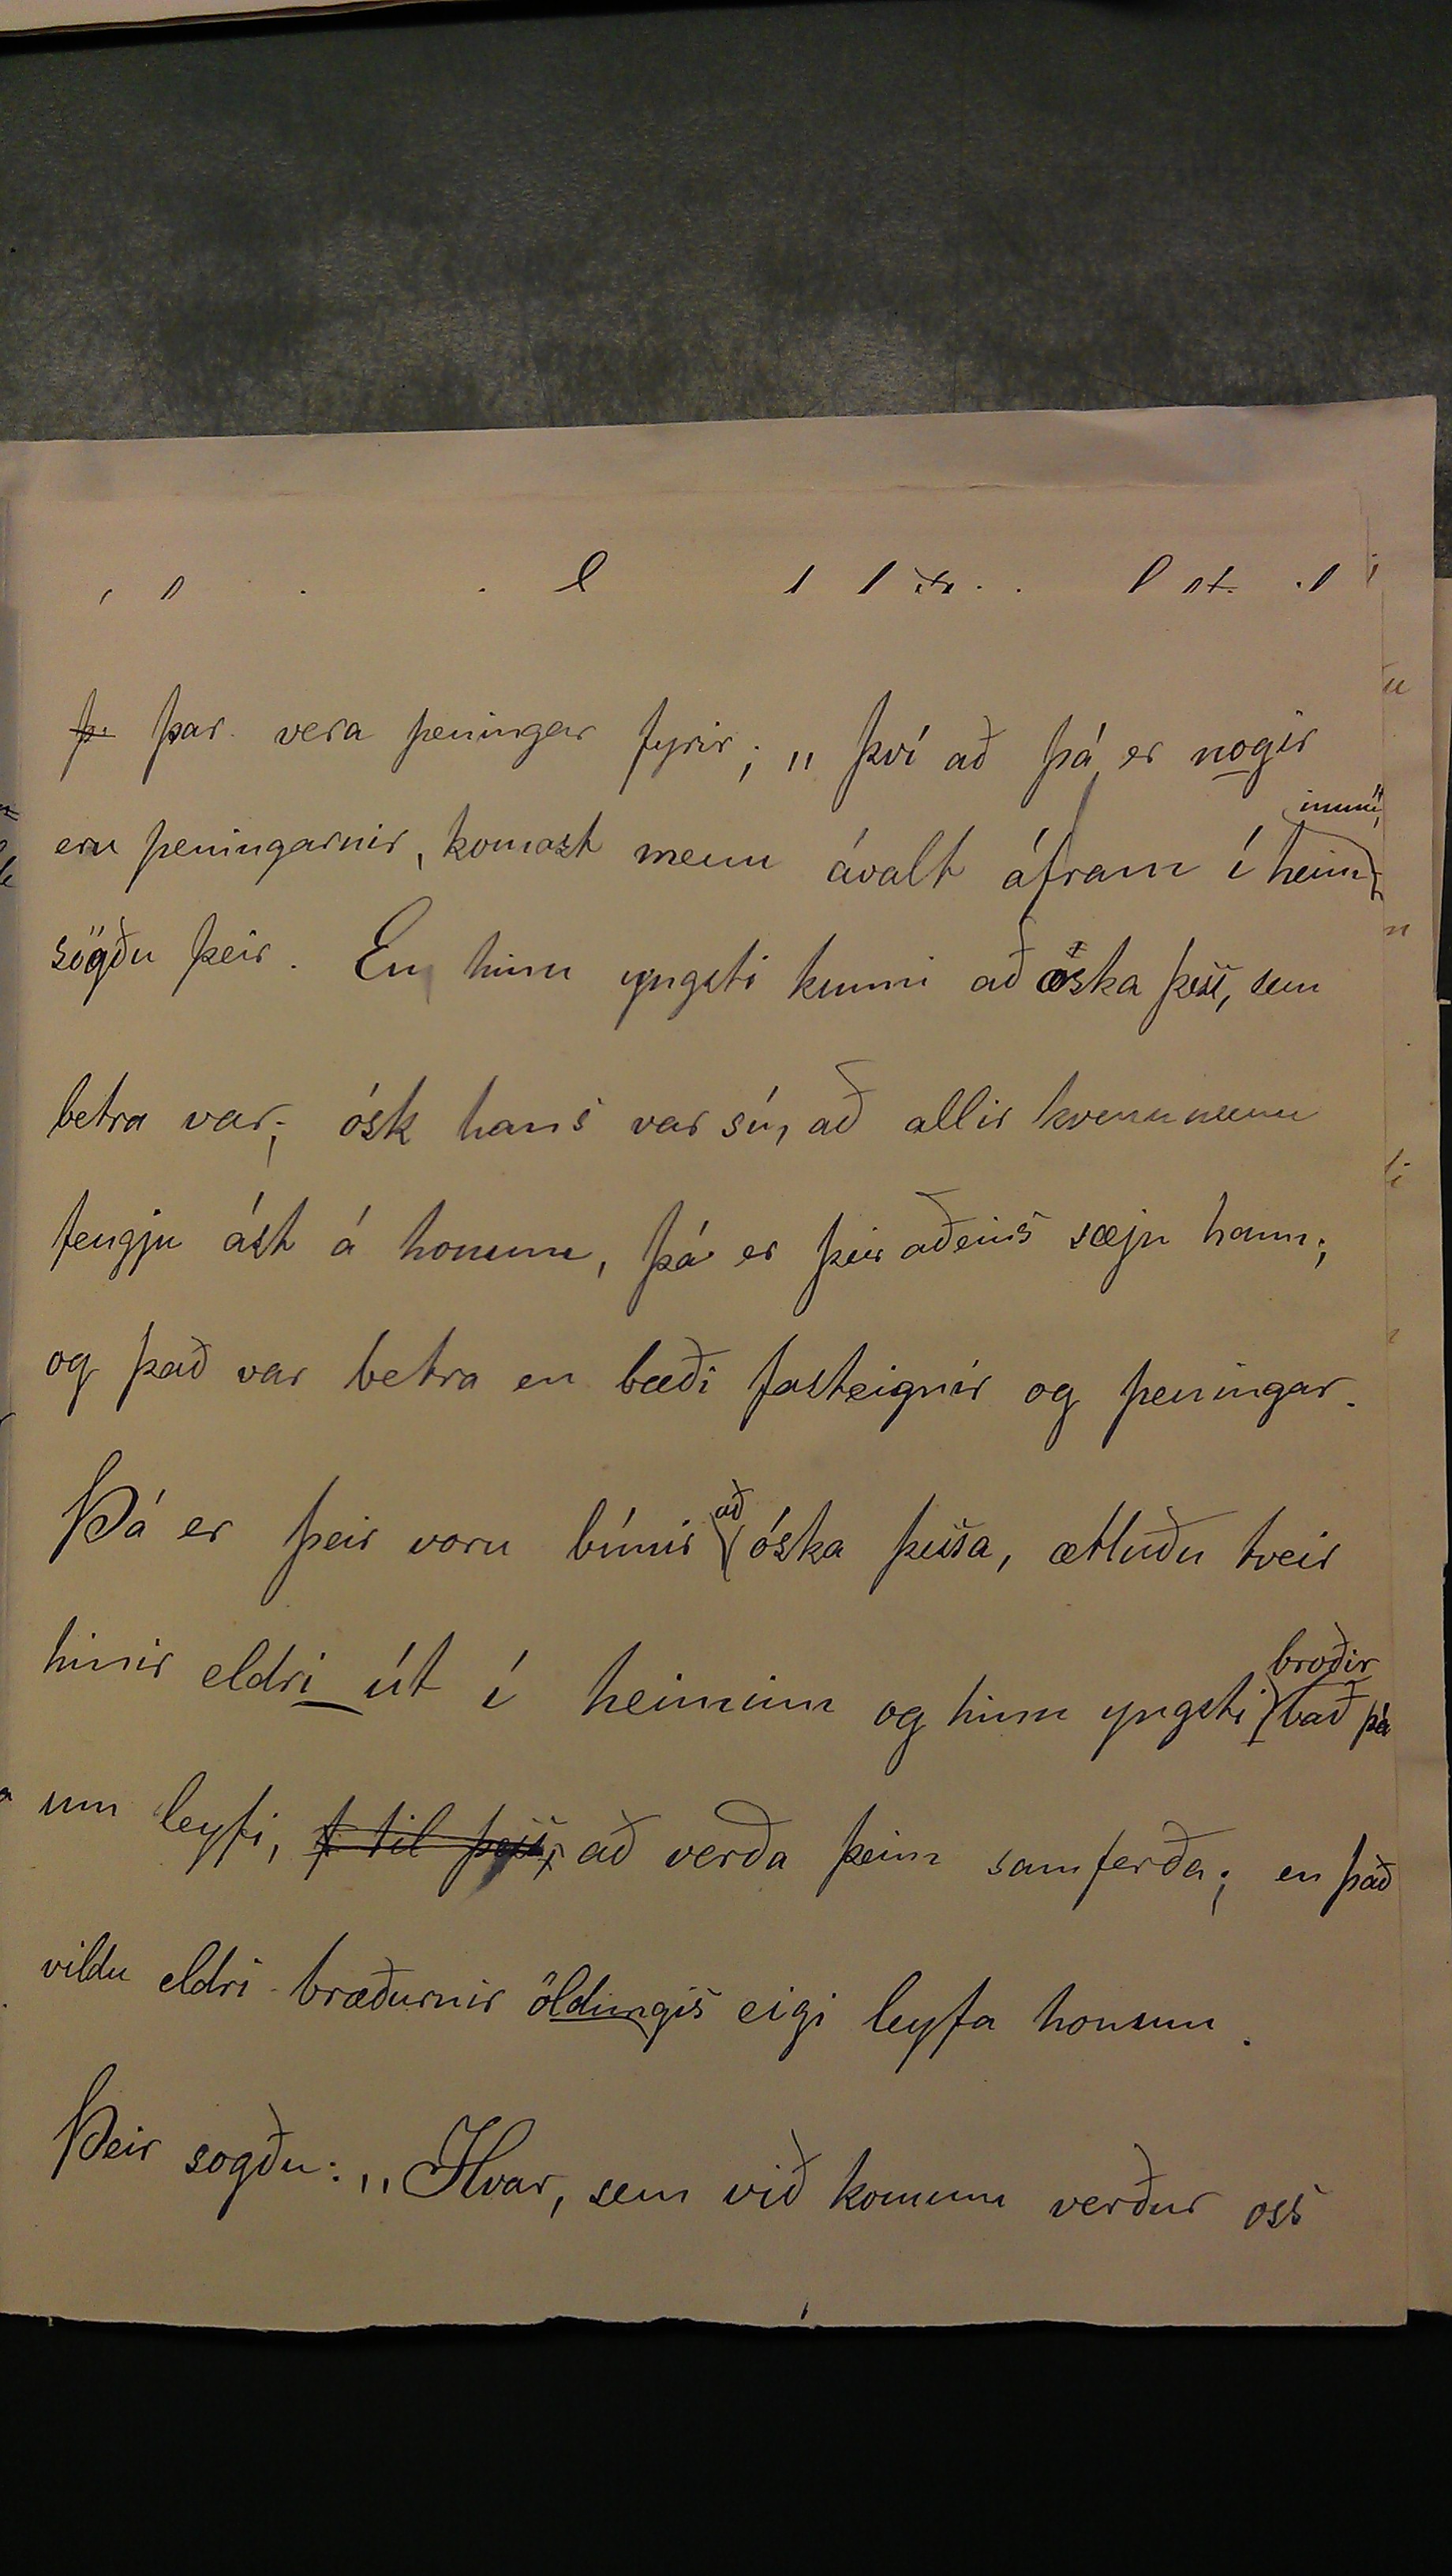 þar vera peningar fyrir; „því að þá er nogir
eru peningarnir, komast menn ávalt áfram í heiminum",
sögðu þeir. En hinn yngsti kunni að óska þess, sem
betra var; ósk hans var sú, að allir kvennmenn
fengju ást á honum, þá er þeir aðeins sæju hann;
og það var betra en bæði fasteignir og peningar.
Þá er þeir voru búnir að óska þessa, ætluðu tveir
hinir eldri út í heiminn og hinn yngsti broðir bað þá
um leyfi, til þess, að verða þeim samferða; en það
vildu eldri bræðurnir öldungis eigi leyfa honum.
Þeir sogðu: „Hvar, sem við komum verður oss